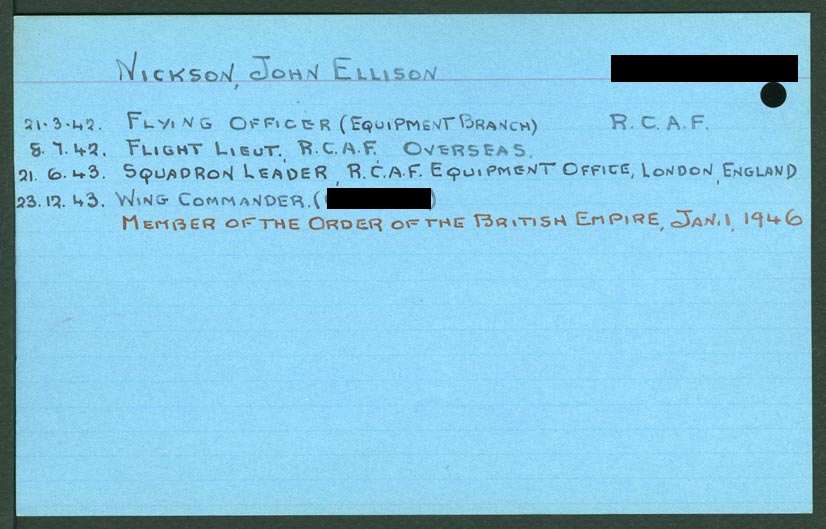 NICKSON, JOHN ELLISON
21.3.42. FLYING OFFICER (EQUIPMENT BRANCH) R.C.A.F.
8.7.42. FLIGHT LIEUT., R.C.A.F. OVERSEAS.
21.6.43. SQUADRON LEADER, R.C.A.F. EQUIPMENT OFFICE, LONDON, ENGLAND
23.12.43. WING COMMANDER. ( )
MEMBER OF THE ORDER OF THE BRITISH EMPIRE, JAN. 1, 1946